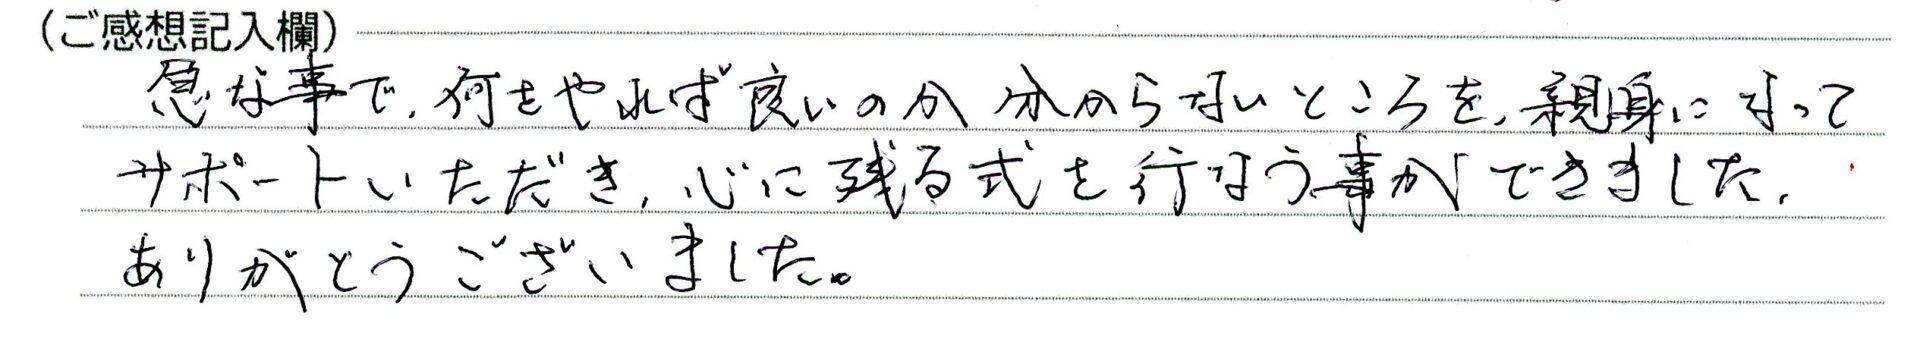 (ご感想記入欄)
急な事で、何をやれば良いのか分からないところを、親身になって
サポートいただき、心に残る式を行なう事ができました。
ありがとうございました。